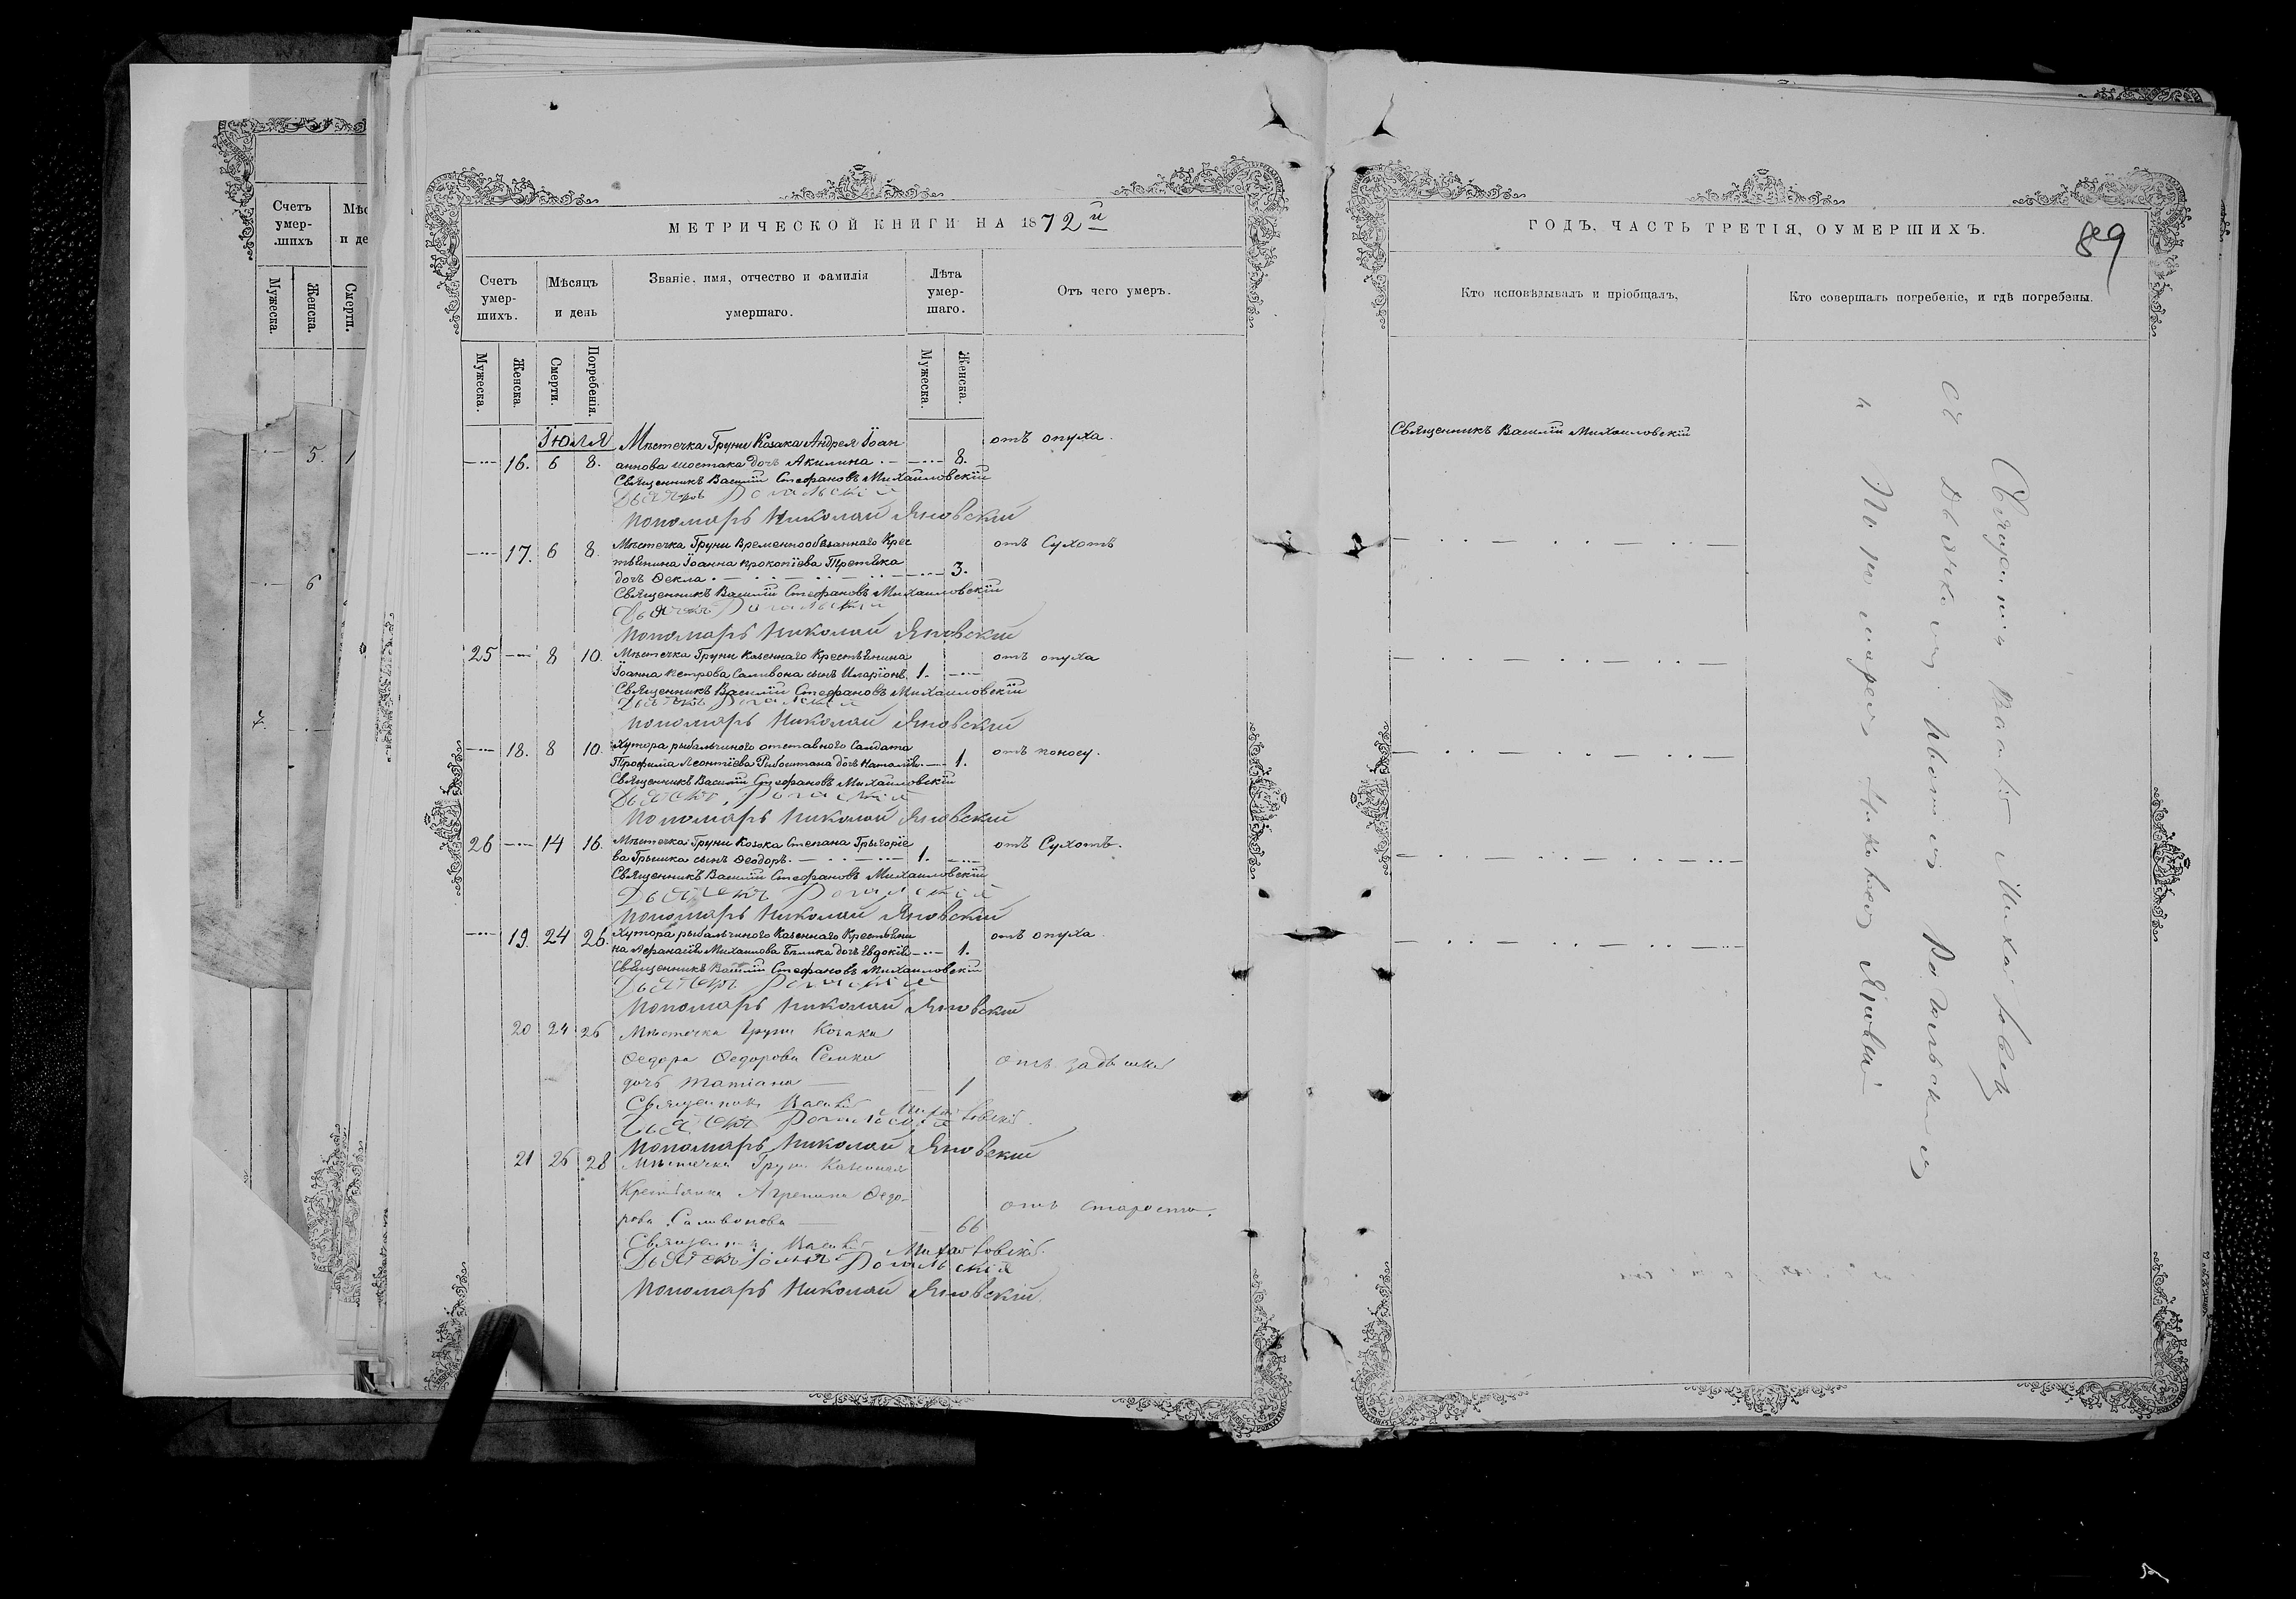 Счетъ
умер-
шихъ
Мужеска.
Женска.
Смерти.
5.
6
7
МЕТРИЧЕСКОЙ КНИГИ НА 1872й
Счетъ умер-шихъ.
Мѣсяцъ и день
Званіе, имя, отчество и фамилія умершаго.
Лѣта умер-шаго.
Отъ чего умеръ.
Мужеска.
Женска.
Смерти.
Погребенія.
Мужеска.
Женска.
Іюля
Мѣстечка Груни Козака Андрея Іоан
отъ опуха.
16. 6 8. аннова Шостака дочь Акилина 8.
Священникъ Василій Стефановъ Михайловскій
Дьячекъ Рогальскій
Пономарь Николай Яновскій
17. 6 8. Мѣстечка Груни Временнообязаннаго Крес
отъ Сухотъ
тьянина Іоанна Прокопіева Третьяка
дочь Ѳекла 3.
Священникъ Василій Стефановъ Михайловскій
Дьячекъ Рогальскій
Пономарь Николай Яновскій
25 8 10. Мѣстечка Груни Казеннаго Крестьянина
отъ опуха
Іоанна Петрова Саливона сынъ Иларіонъ 1.
Священникъ Василій Стефановъ Михайловскій
Дьячекъ Рогальскій
Пономарь Николай Яновскій
18. 8 10. Хутора рыбальчиного отставного Салдата
отъ поносу.
Трофима Леонтіева дочь Наталія 1.
Священникъ Василій Стефановъ Михайловскій
Дьячекъ Рогальскій
Пономарь Николай Яновскій
26 14 16. Мѣстечка Груни Козака Степана Грыгоріе
отъ Сухотъ.
ва Грышка сынъ Ѳеодоръ 1.
Священникъ Василій Стефановъ Михайловскій
Дьячекъ Рогальскій
Пономарь Николай Яновскій
19. 24 26. Хутора рыбальчиного Казеннаго Крестьяни
отъ опуха
на Афанасія Михаилова Бѣлика дочь Евдокія 1.
Священникъ Василій Стефановъ Михайловскій
Дьячекъ Рогальскій
Пономарь Николай Яновскій
20 24 26 Мѣстечка Груни Козака
Ѳедора Ѳедорова Семки
отъ
дочь Татіана 1
Священникъ Василій Михайловскій
Дьячекъ Рогальскій
Пономарь Николай Яновскій
21 26 28 Мѣстечка Груни Казенная
Крестьянка Агрепина Ѳедо-
отъ старости.
рова Саливонова 66
Священникъ Василій Михайловскій.
Дьячекъ Рогальскій
Пономарь Николай Яновскій.
ГОДЪ, ЧАСТЬ ТРЕТІЯ, ОУМЕРШИХЪ.
89
Кто исповѣдывалъ и пріобщалъ,
Кто совершалъ погребеніе, и гдѣ погребены.
Священникъ Василій Михайловскій
Священникъ Василій Михайловскій
съ Дьячкомъ Рогальскимъ
и Пономаремъ Николаемъ